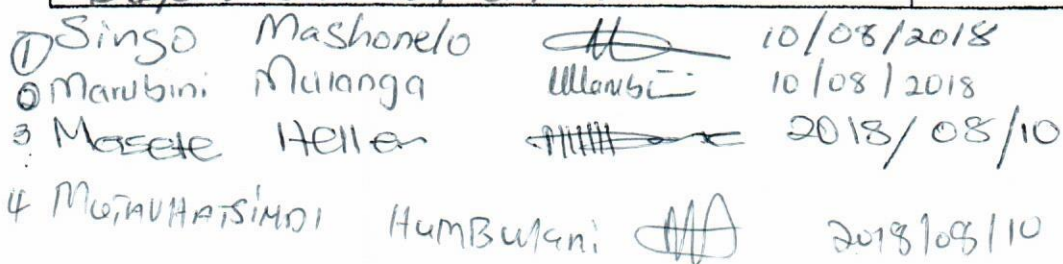 1 Singo Mashonelo 10/08/2018
2 Marubini Mulanga Marubini 10/08/2018
3 Masete Hellen 2018/08/10
4 MUTAVHATSINDI HUMBulani 2018/08/10